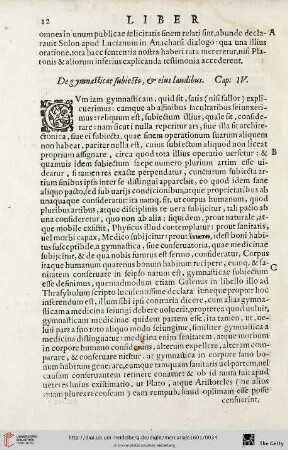 12 LIBER
omnes in unum publicae felicitatis finem relati sint, abunde decla- A
rauit Solon apud Lucianum in Anacharsi dialogo: qua una illius
oratione, tota haec sententia nostra haberi rata mereretur, nisi Pla-
tonis & aliorum inferius explicanda testimonia accederent.
De gymnasticae subiecto, & eius laudibus. Cap. IV.
CVm iam gymnasticam, quid sit, satis (nisi fallor) expli-
cuerimus: eamque ab affinibus facultatibus seiunxeri-
mus: reliquum est, subiectum illius, quale sit, conside-
rare: nam sicuti nulla reperitur ars, siue illa sit architec-
tonica, siue ei subiecta, quae finem operationum suarum aliquem
non habeat, pariter nulla est, cuius subiectum aliquod non liceat
proprium assignare, circa quod tota illius operatio uersetur: & B
quamuis idem subiectum saepe numero plurium artium esse ui-
deatur, si tamen res exacte perpendatur, cunctarum subiecta ar-
tium finibus ipsis inter se distingui apparebit, eo quod idem sane
aliquo pacto, sed sub uarijs conditionibus, atque proprietatibus ab
unaquaque consideratur: ita namq. sit, ut corpus humanum, quod
pluribus artibus, atque disciplinis re uera subijcitur, tali pacto ab
una consideretur, quo non ab alia: siquidem, prout naturale, at-
que mobile existit, Physicus illud contemplatur: prout sanitatis,
uel morbi capax, Medico subijcitur: prout uero, idest boni habi-
tus susceptibile, a gymnastica, siue conseruatoria, quae medicinae
subijcitur, & de qua nobis futurus est sermo, consideratur. Corpus
itaque humanum quatenus bonum habitum recipere, eumq. & sani-
tatem conseruare in seipso natum est, gymnasticae subiectum C
esse definimus, quemadmodum etiam Galenus in libello illo ad
Thrasybulum scripto luculentissime declarat: neque propter hoc
inferendum est, illum sibi ipsi contraria dicere, cum alias gymna-
sticam a medicina seiungi debere uoluerit, propterea quod uidetur,
gymnasticam medicinae quidem partem esse, ita tamen, ut, ne-
luti pars a suo toto aliquo modo seiungitur, similiter gymnastica a
medicina distinguatur: medicina enim sanitatem, atque morbum
in corpore humano considerans, alterum expellere, alteram compa-
rare, & conseruare nititur. at gymnastica in corpore sano bo-
num habitum generare, eumque tanquam sanitatis uel partem, uel
causam conseruantem retinere conatur: & ob id tam fuit apud
ueteres huius existimatio, ut Plato, atque Aristoteles (ne alios
quam plures recenseam) eam rempub. haud optimam esse posse
censuerint,
http://digi.ub.uni-heidelberg.de/diglit/mercuriale1601/0034
© Universitätsbibliothek Heidelberg
The Getty